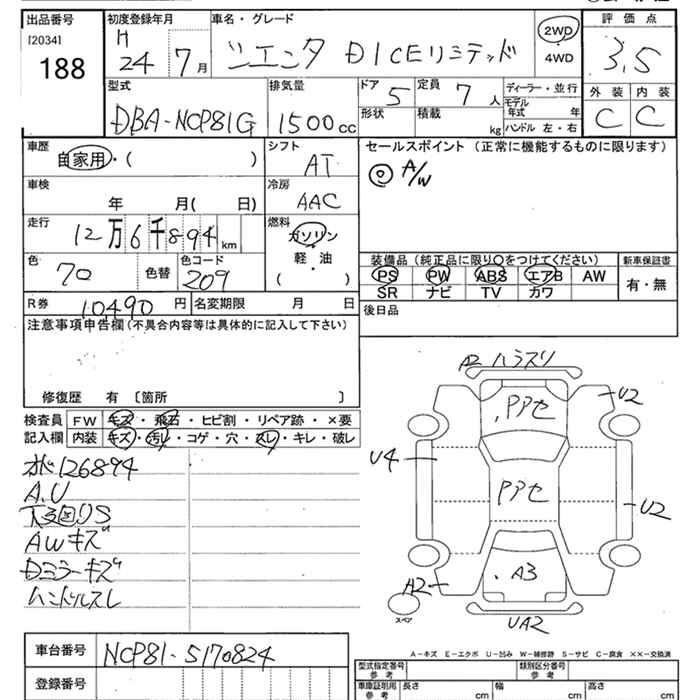 出品番号 初度登録年月 車名・グレード 評価点
[2034] H
188 24 7月 シエンタ DICEリミテッド 2WD 4WD 3.5
型式 排気量 ドア 5 定員 7人 ディーラー・並行 外装 内装
DBA-NCP81G 1500cc 形状 積載 kg モデル年式 年 C C
ハンドル 左・右
車歴 シフト セールスポイント (正常に機能するものに限ります)
自家用・( ) AT ◎ A/W
車検 冷房
年 月( 日) AAC
走行 燃料
12万6千894km ガソリン
軽油
・
( )
色 カラーコード
70 色替 209
装備品 (純正品に限り○をつけてください) 新車保証書
PS PW ABS エアB AW 有・無
SR ナビ TV カワ
R券 10490円 名変期限 月 日 後日品
注意事項申告欄 (不具合内容等は具体的に記入して下さい)
修復歴 有 〔箇所 〕
検査員 FW キズ・飛石・ヒビ割・リペア跡・×要
記入欄 内装 キズ・汚レ・コゲ・穴・スレ・キレ・破レ
オド126894
A.U
下回りS
AWキズ
Dミラーキズ
ハンドルスレ
A2 ハラスリ
U2
PPセ
U4
PPセ
U2
A2
A3
スペア
UA2
A-キズ E-エクボ U-凹み W-補修跡 S-サビ C-腐食 ××-交換済
車台番号 NCP81-5170824
登録番号
型式指定番号 参考 類別区分番号 参考
車庫証明用 参考 長さ cm 幅 cm 高さ cm